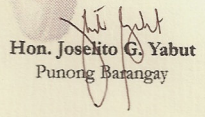 Hon. Joselito G. Yabut
Punong Barangay